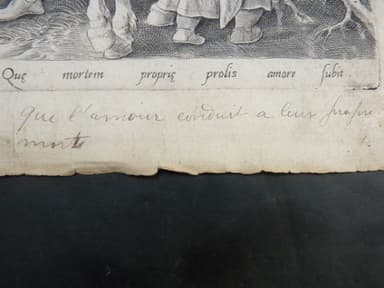 Quę mortem proprię prolis amore subit.
que l'amour conduit a leur propre
mort